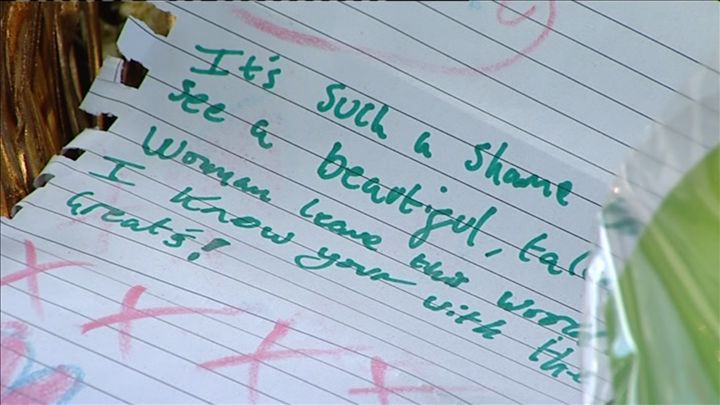 It's such a shame
see a beautiful, tal
Woman leave this wor
I know your with the
Greats!
X X X X